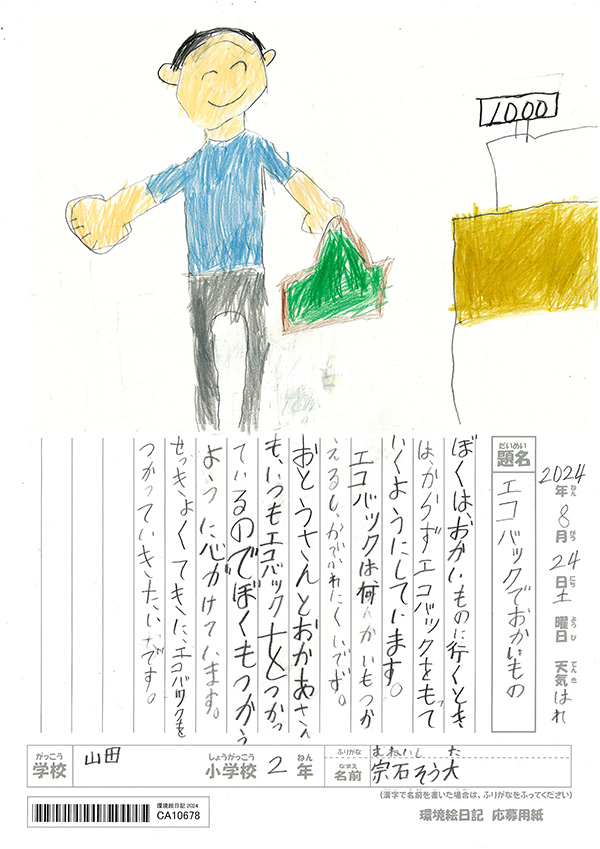 1000
2024年ねん8月がつ24日にち土曜日ようび 天気てんきはれ
題名だいめい エコバックでおかいもの
ぼくは、おかいものに行くとき
は、かならずエコバックをもって
いくようにしています。
エコバックは何かいもつか
えるし、
おとうさんとおかあさん
も、いつもエコバックをつかっ
ているのでぼくもつかう
ように心がけています。
せっきょくてきに、エコバックを
つかっていきたいです。
がっこう 学校 山田 しょうがっこう 小学校 2 ねん 年
ふりがな むねいし た
なまえ 名前 宗石そう大
(漢字で名前を書いた場合は、ふりがなをふってください)
環境絵日記 2024
CA10678
環境絵日記 応募用紙